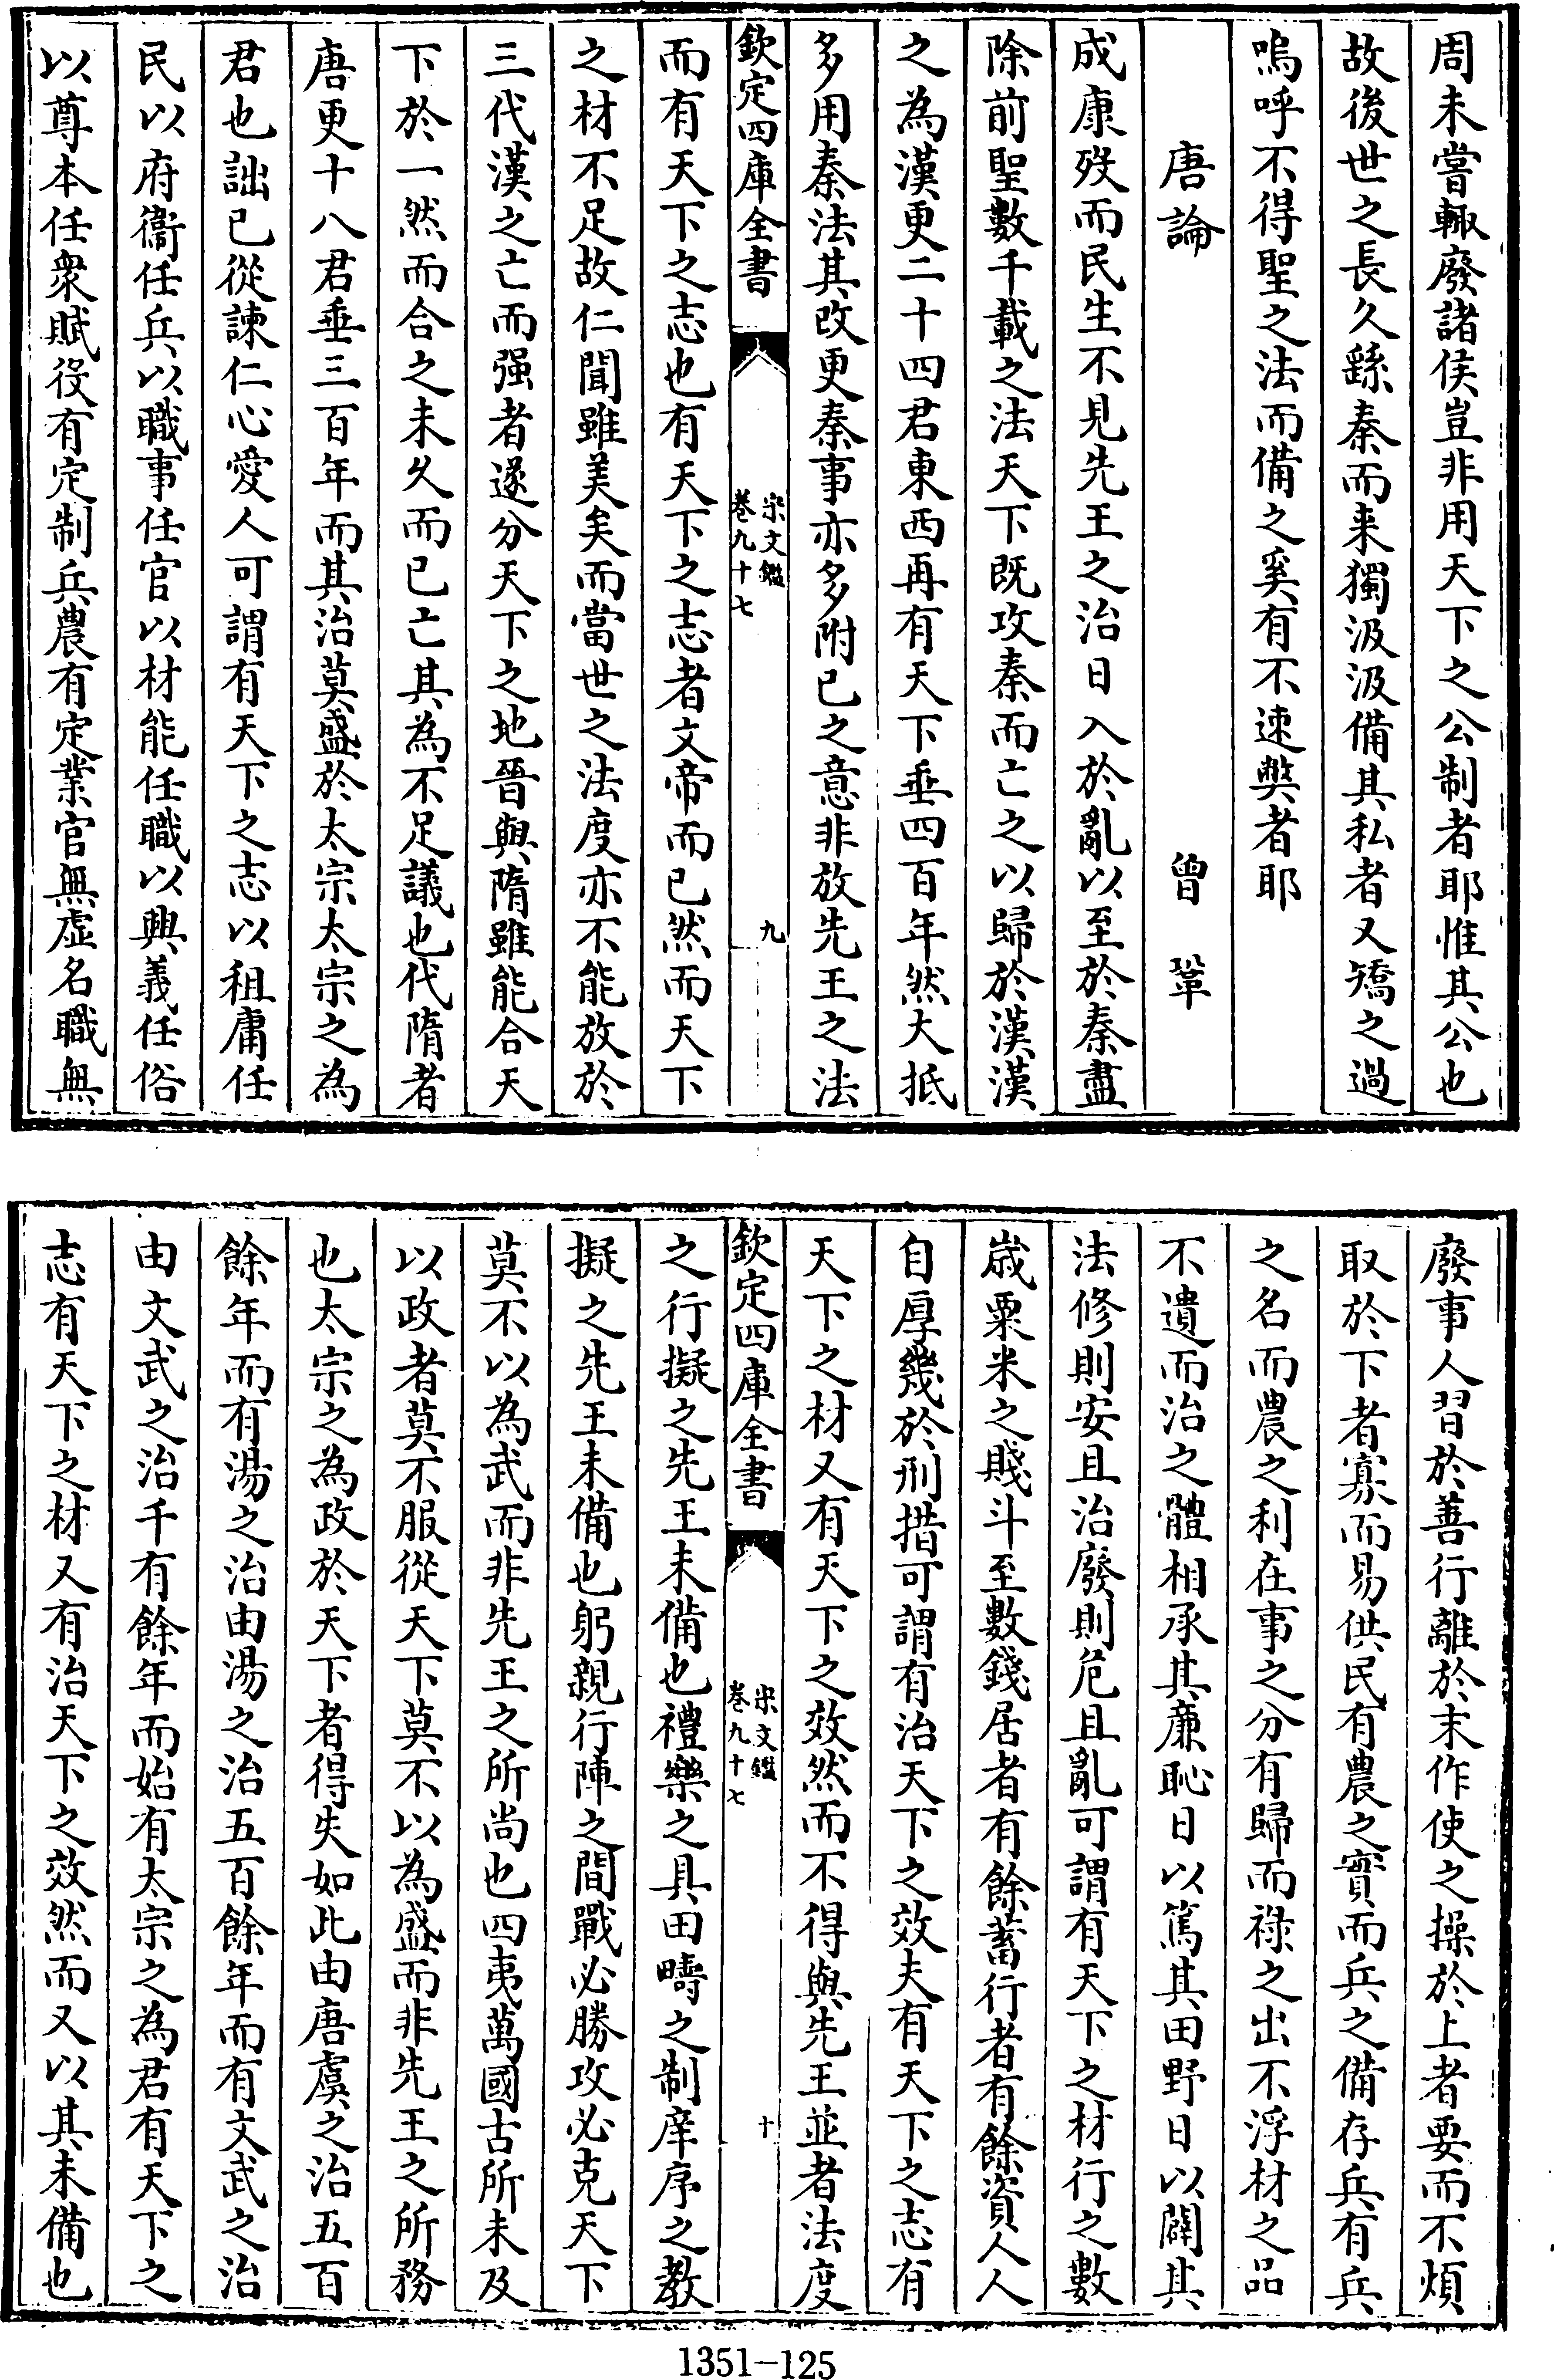 周未嘗輙廢諸侯豈非用天下之公制者耶惟其公也
故後世之長久繇秦而来獨汲汲備其私者又矯之過
嗚呼不得聖之法而備之奚有不速弊者耶
唐論 曾鞏
成康歿而民生不見先王之治日入於亂以至於秦盡
除前聖數千載之法天下既攻秦而亡之以歸於漢漢
之為漢更二十四君東西再有天下垂四百年然大抵
多用秦法其改更秦事亦多附已之意非放先王之法
欽定四庫全書 宋文鑑 卷九十七 九
而有天下之志也有天下之志者文帝而已然而天下
之材不足故仁聞雖美矣而當世之法度亦不能放於
三代漢之亡而强者遂分天下之地晉與隋雖能合天
下於一然而合之未久而已亡其為不足議也代隋者
唐更十八君垂三百年而其治莫盛於太宗太宗之為
君也詘已從諫仁心愛人可謂有天下之志以租庸任
民以府衞任兵以職事任官以材能任職以興義任俗
以尊本任衆賦役有定制兵農有定業官無虛名職無
廢事人習於善行離於末作使之操於上者要而不煩
取於下者寡而易供民有農之實而兵之備存兵有兵
之名而農之利在事之分有歸而祿之出不浮材之品
不遺而治之體相承其廉恥日以篤其田野日以闢其
法修則安且治廢則危且亂可謂有天下之材行之數
歲粟米之賤斗至數錢居者有餘蓄行者有餘資人人
自厚幾於刑措可謂有治天下之效夫有天下之志有
天下之材又有天下之效然而不得與先王並者法度
欽定四庫全書 宋文鑑 卷九十七 十
之行擬之先王未備也禮樂之具田疇之制庠序之教
擬之先王未備也躬親行陣之間戰必勝攻必克天下
莫不以為武而非先王之所尚也四夷萬國古所未及
以政者莫不服從天下莫不以為盛而非先王之所務
也太宗之為政於天下者得失如此由唐虞之治五百
餘年而有湯之治由湯之治五百餘年而有文武之治
由文武之治千有餘年而始有太宗之為君有天下之
志有天下之材又有治天下之效然而又以其未備也
1351-125